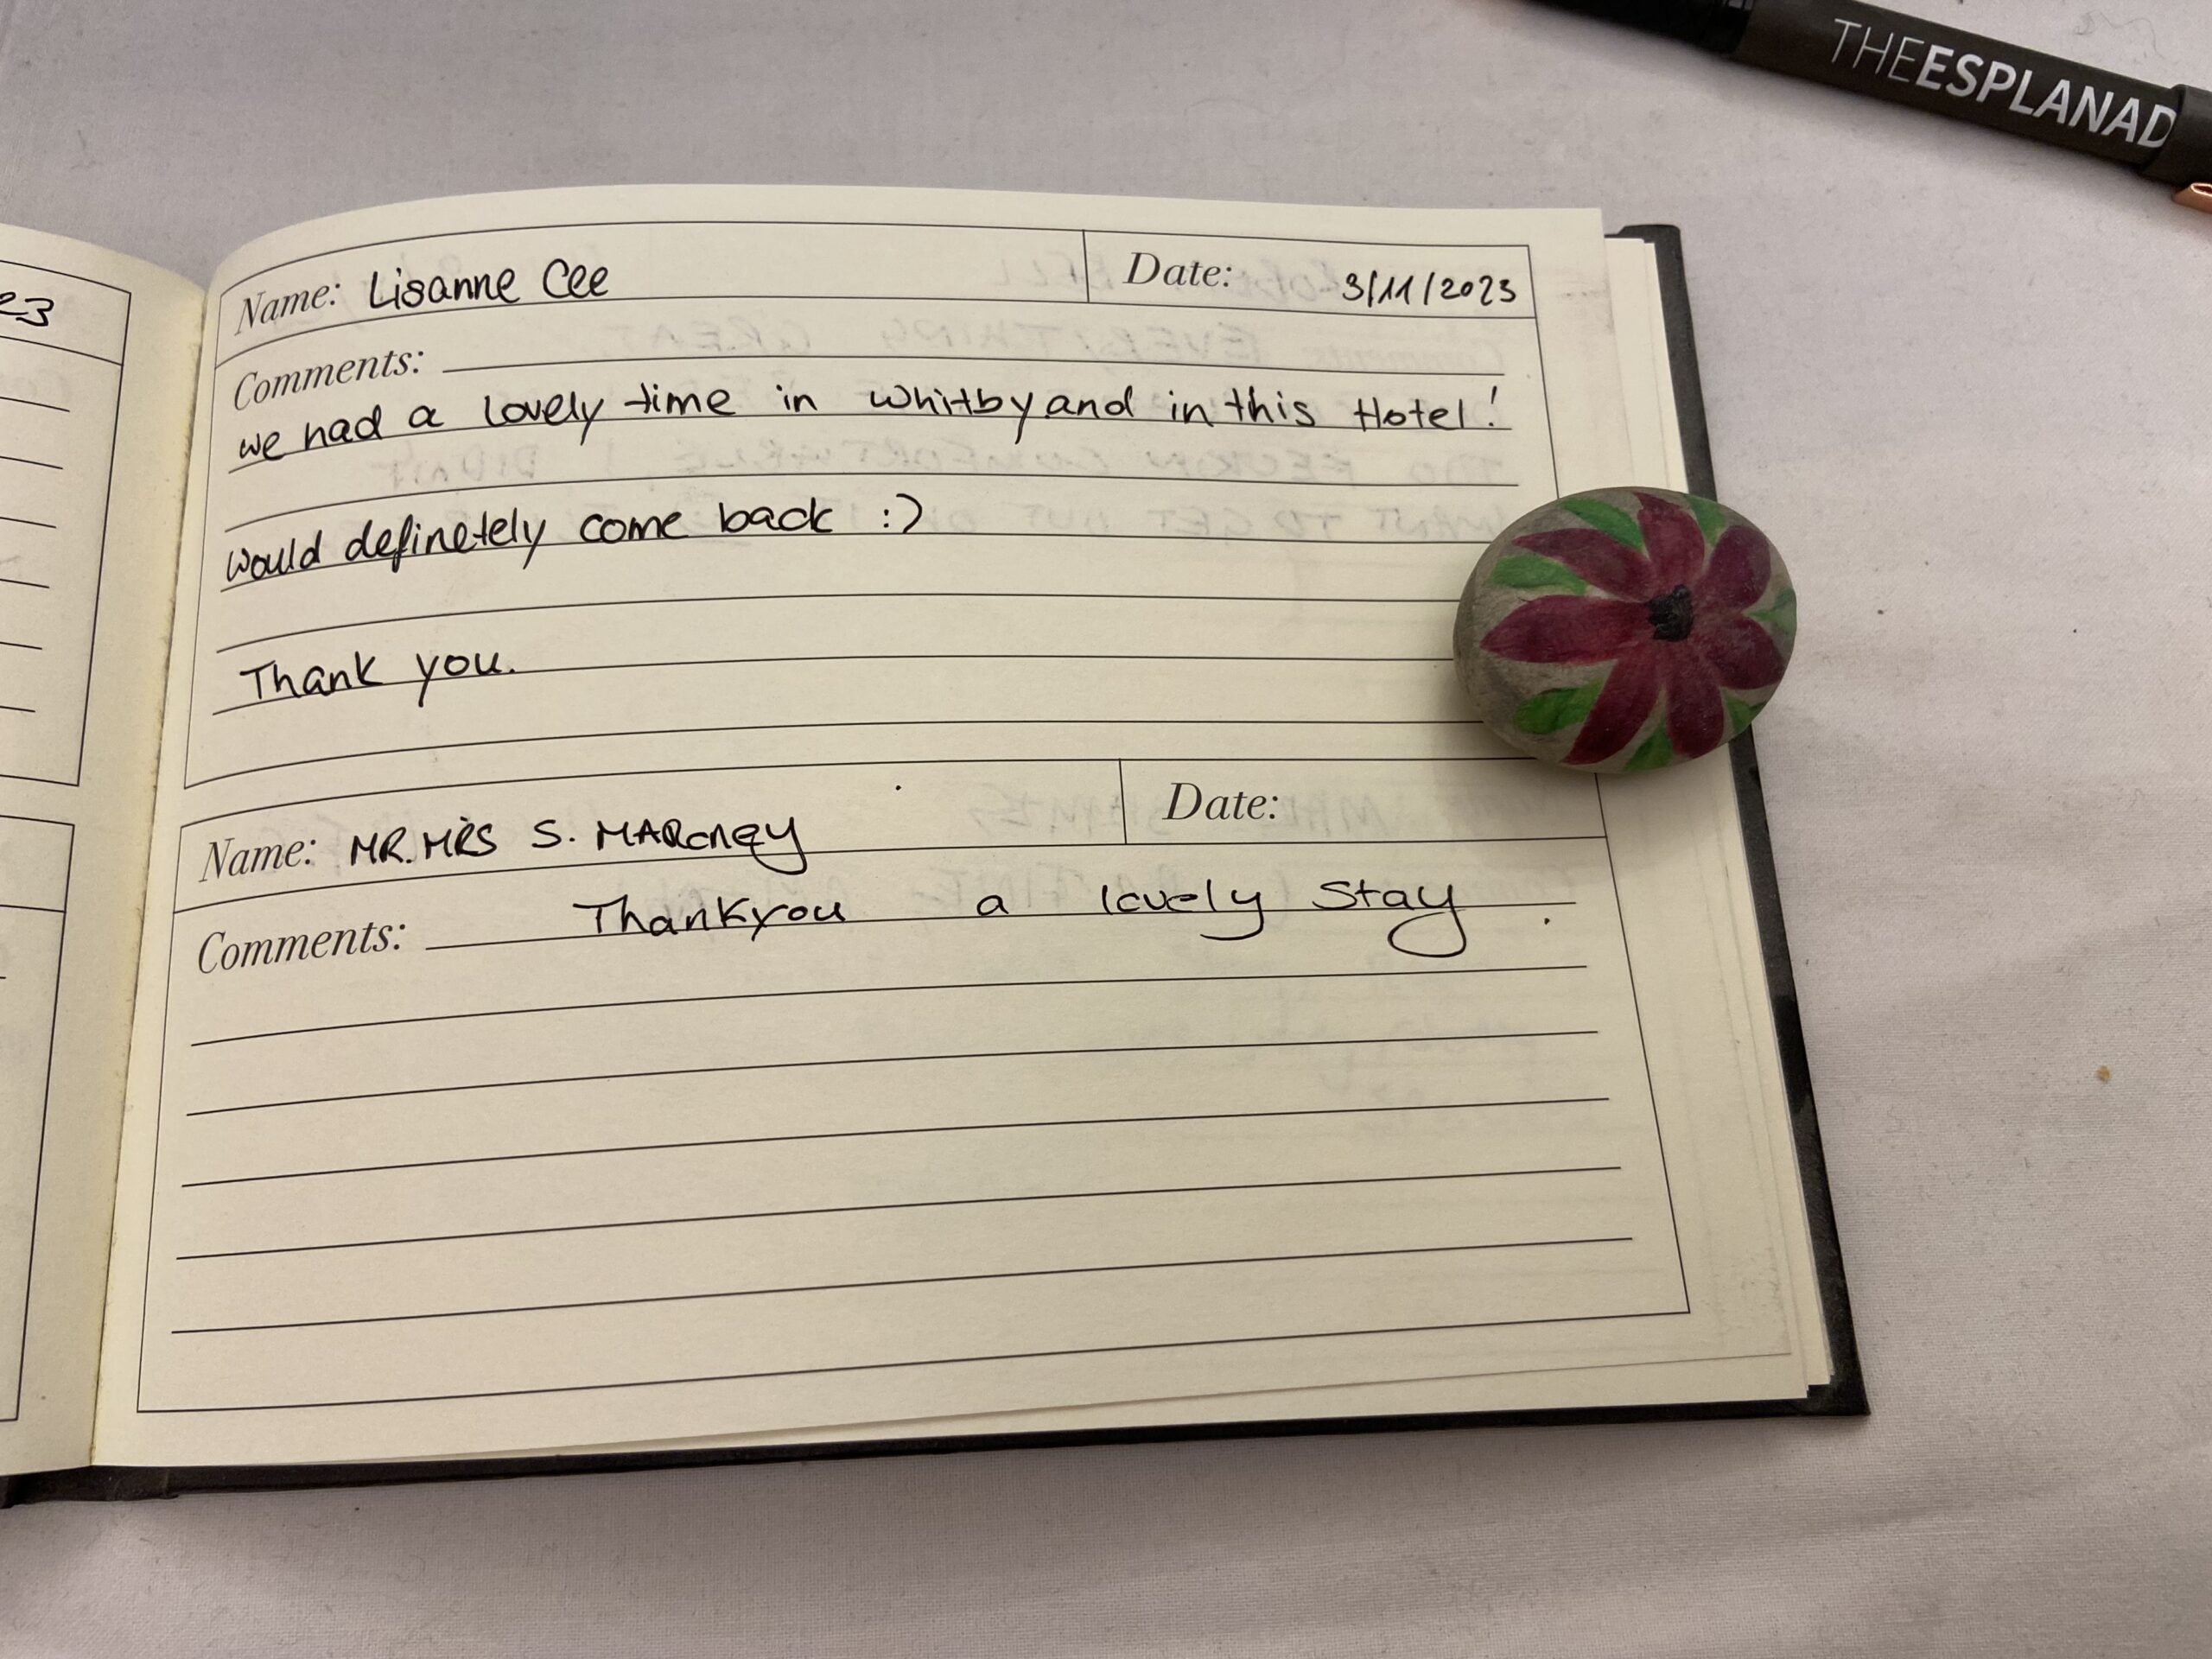 THEESPLANAD
23
Name: Lisanne Cee
Date: 3/11/2023
Comments:
we had a lovely time in Whitby and in this Hotel!
would definetely come back :)
Thank you.
Name: MR.MRS S. MARCNEY
Date:
Comments: Thankyou a lovely Stay.